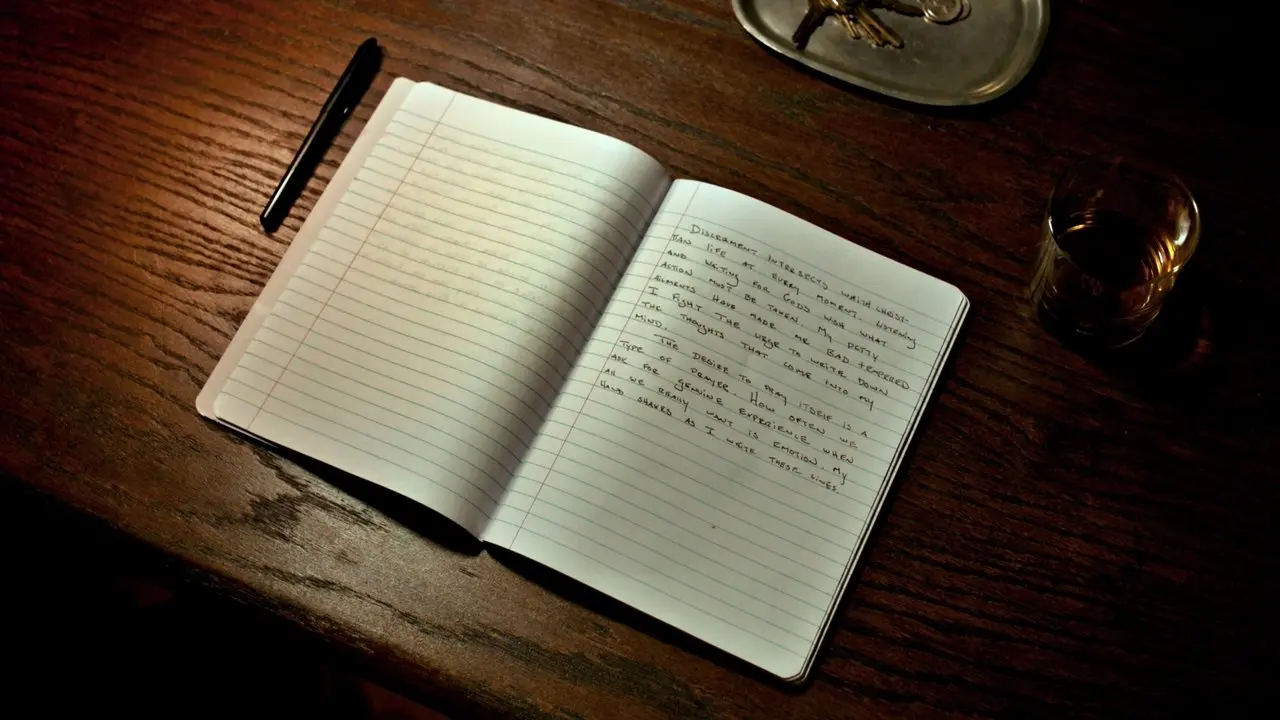 DISCERNMENT INTERSECTS WHITH CHRIST-
IAN LIFE AT EVERY MOMENT. LISTENING
AND WAITING FOR GODS WISH WHAT
ACTION MUST BE TAKEN. MY PETTY
AILMENTS HAVE MADE ME BAD TEMPERED
I FIGHT THE URGE TO WRITE DOWN
THE THOUGHTS THAT COME INTO MY
MIND.
THE DESIRE TO PRAY ITSELF IS A
TYPE OF PRAYER. HOW OFTEN WE
ASK FOR GENUINE EXPERIENCE WHEN
All WE REALLY WANT IS EMOTION. MY
HAND SHAKES AS I WRITE THESE LINES.